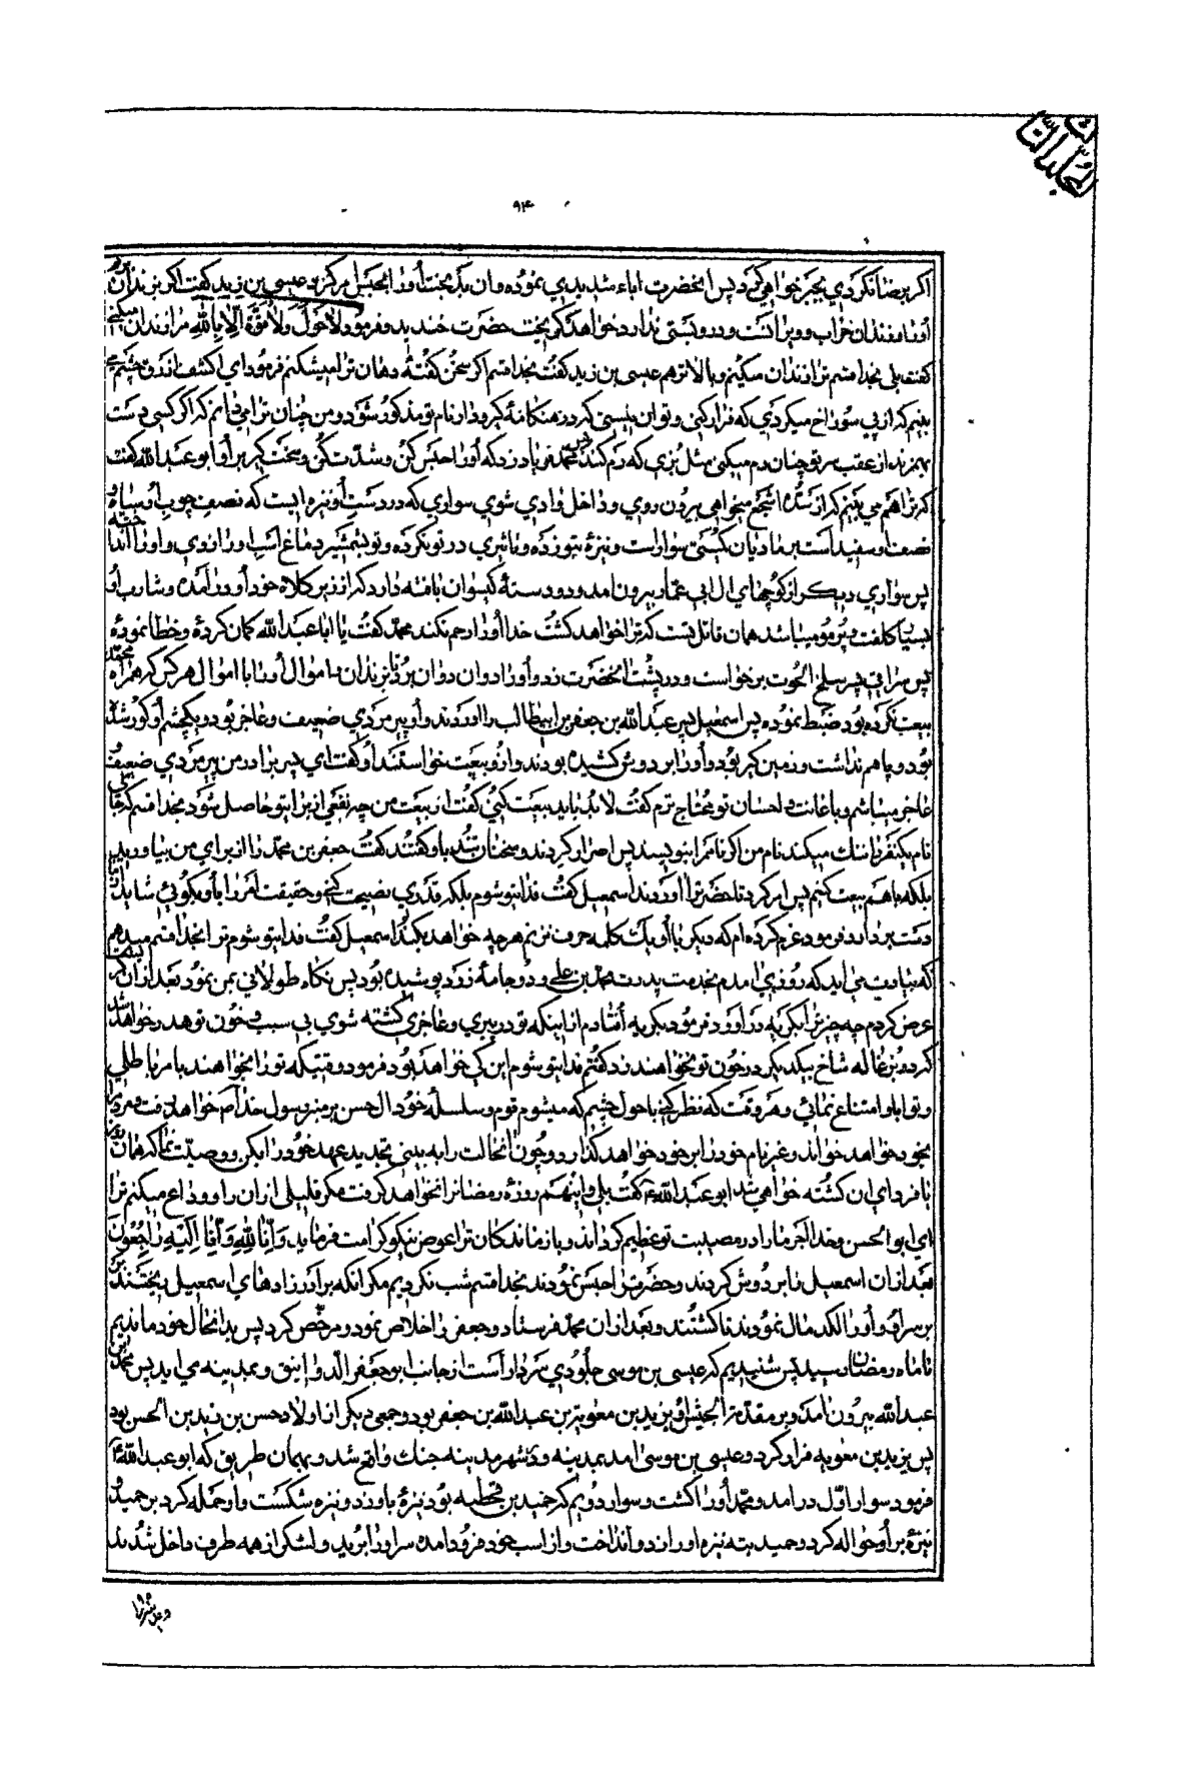 ۹۴
اکر برضا نکردی بجبر خواهی کرد پس آنحضرت اباء شدیدی نموده و ان بدبخت اورا بحبس امر کرد عیسی بن زید کفت اکر بزندان بری
اورا و زندان خراب و ویرانست و در و بستی ندارد خواهد کریخت حضرت خندید و فرمود لاحول ولا قوة الا بالله مرا زندان میکنی
کفت بلی بخدا قسم ترا زندان میکنیم و بالاتر هم عیسی بن زید کفت بخدا قسم اکر سخن کفتهٔ دهان ترا میشکنم فرمود ای اکشف ازرق چشم می
بینم که از پی سوراخ میکردی که فرار کنی و تو ان نیستی که در هنکامهٔ کیر و دار نام تو مذکور شود و من چنان ترا می دانم که اکر کسی دست
بهم زند از عقب سر تو چنان رم میکنی مثل بزی که رم کند پس محمد فریاد زد که اورا حبس کن و شدت کن و سخت کیر بر او ابو عبدالله کفت
که ترا هم می بینم که از سدهٔ اشجع میخواهی بیرون روی و داخل وادی شوی سواری که در دست او نیزه ایست که نصف چوب او سیاه و
نصف او سفید است بر مادیان کمیتی سوار است و نیزهٔ بتو زده و تاثیری در تو نکرده و تو بشمشیر دماغ اسب ورا زدی و اورا انداخته
پس سواری دیکر از کوچهای ال ابی عمار بیرون امد و دو دستهٔ کیسوان بافته دارد که از زیر کلاه خود او در آمده و شارب او
بسیار کلفت و پر مو میباشد همان قاتل تست که ترا خواهد کشت خدا اورا رحم نکند محمد کفت یا ابا عبدالله کمان کردهٔ و خطا نمودهٔ
پس سراقی پسر سلح الحوت برخواست و در پشت آنحضرت زد و اورا دوان دوان برد تا بزندان و اموال اورا با اموال هر کس که همراه محمد
بیعت نکرده بود ضبط نموده پس اسمعیل پسر عبدالله بن جعفر بن ابیطالب را اوردند و او پیر مردی ضعیف و عاجز بود و یکچشم او کور شده
بود و پا هم نداشت و زمین کیر بود و اورا بر دوش کشیده بودند و از و بیعت خواستند او کفت ای پسر برادر من پیر مردی ضعیف و
عاجز میباشم و باعانت و احسان تو محتاج ترم کفت لابد باید بیعت کنی کفت از بیعت من چه نفعی از برای تو حاصل شود بخدا قسم که جای
نام یکنفر را تنک میکند نام من اکر نام مرا بنویسد پس اصرار کردند و سخنان تند باو کفتند کفت جعفر بن محمد را از برای من بیاورید
بلکه با هم بیعت کنیم پس امر کرد تا حضرت را اوردند اسمعیل کفت فدایتو شوم بلکه قدری نصیحت کنی و حقیقت امر را باو بکوئی شاید از ما
دست بردارد فرمود عزم کرده ام که دیکر با او یک کلمه حرف نزنم هر چه خواهد بکند اسمعیل کفت فدایتو شوم ترا بخدا قسم میدهم
که بیادت می اید که روزی امدم بخدمت پدرت محمد بن علی و دو جامهٔ زرد پوشیده بود پس نکاه طولانی بمن نمود بعد ازان کریست
عرض کردم چه چیز ترا بکریه در اورد فرمود بکریه افتادم از اینکه تو در پیری و عاجزی کشته شوی بی سبب و خون تو هدر خواهد شد
کرد و بزغاله شاخ بیکدیکر در خون تو نخواهند زد کفتم فدایتو شوم این کی خواهد بود فرمود وقتیکه تو را بخواهند بامر باطلی
و تو ابا و امتناع نمائی و هر وقت که نظر کنی باحول چشم که میشوم قوم و سلسلهٔ خود ال حسن بر منبر رسول خدا م خواهد رفت و مردم را
بخود خواهد خواند و غیر نام خود را بر خود خواهد کذارد و چون آنحالت را به بینی تجدید عهد خود را بکن و وصیت نما که همان روز
یا فردای ان کشته خواهی شد ابو عبدالله ع کفت بلی و اینهم روزهٔ رمضانرا نخواهد کرفت مکر قلیلی ازان را و وداع میکنم ترا
ای ابو الحسن و خدا اجر ما را در مصیبت تو عظیم کرداند و بازماندکان ترا عوض نیکو کرامت فرماید و انا لله و انا الیه راجعون
بعد ازان اسمعیل را بر دوش کردند و حضرت را حبس نمودند بخدا قسم شب نکردیم مکر انکه برادرزادهای اسمعیل ریختند
بر سر او و اورا لکدمال نمودند تا کشتند و بعد ازان محمد فرستاد و جعفر را خلاص نمود و مرخص کرد پس بدانحال خود ماندیم
تا ماه رمضان رسید پس شنیدیم که عیسی بن موسی جلودی سردار است از جانب ابو جعفر الدوانیق و بمدینه می اید پس محمد ابن
عبدالله بیرون امد و بر مقدمة الجیش او یزید بن معویة بن عبدالله بن جعفر بود و جمعی دیکر از اولاد حسن بن زید بن الحسن بود
پس یزید بن معویه فرار کرد و عیسی بن موسی امد بمدینه و در شهر مدینه جنک واقع شد و بهمان طریق که ابو عبدالله ع
فرمود سوار اول در امد و محمد اورا کشت و سوار دویم که حمید بن قحطبه بود نیزهٔ باو زد و نیزه شکست و او حمله کرد بر حمید و
نیزهٔ بر او حواله کرد و حمید بته نیزه اورا زد و انداخت و از اسب خود فرود امده سر اورا برید و لشکر از همه طرف داخل شدند